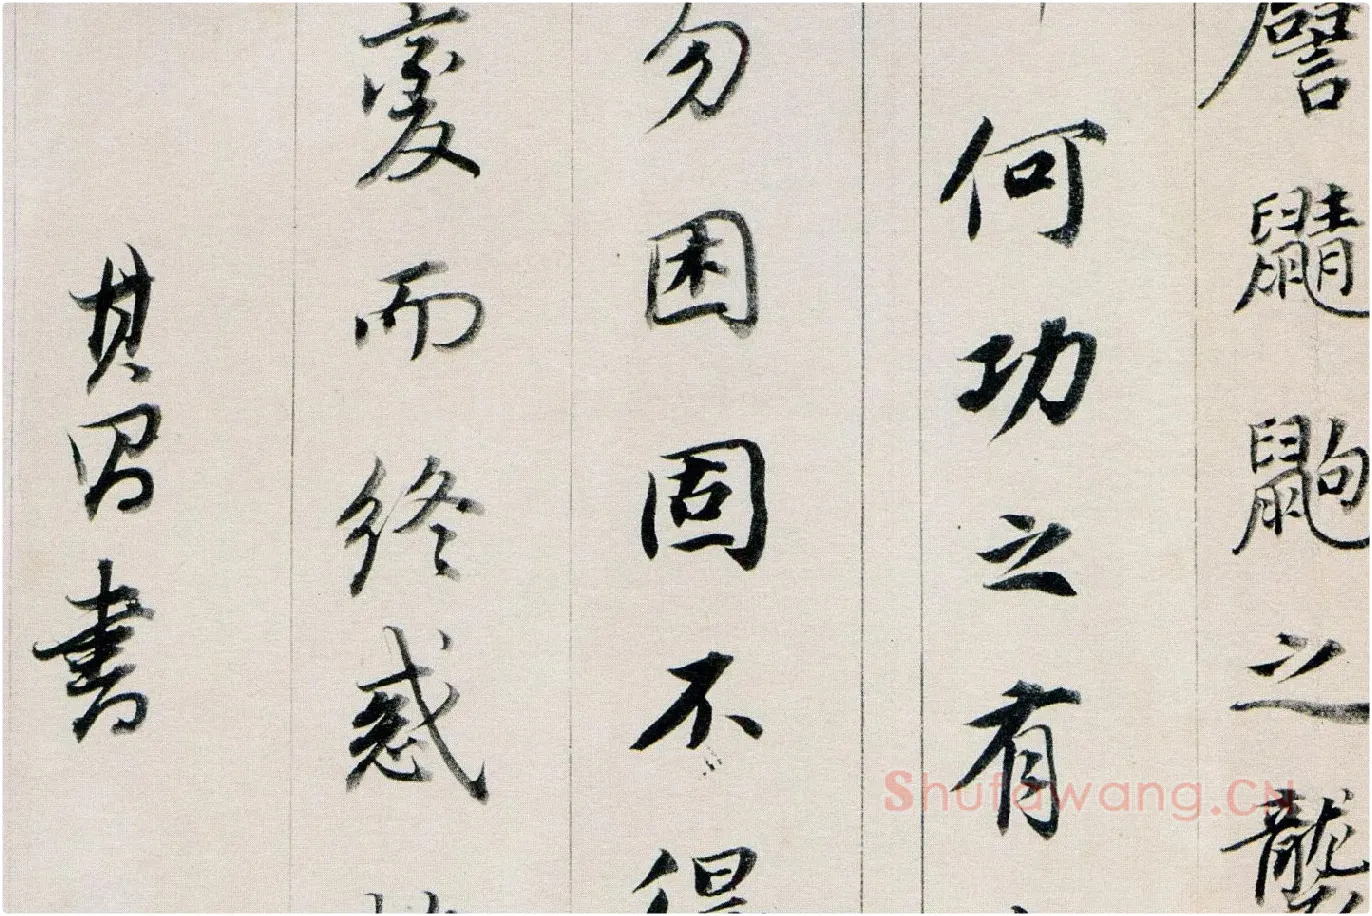 譬鼱鼩之襲
何功之有
勿困固不得
變而終惑
其昌書
Shufawang.CN